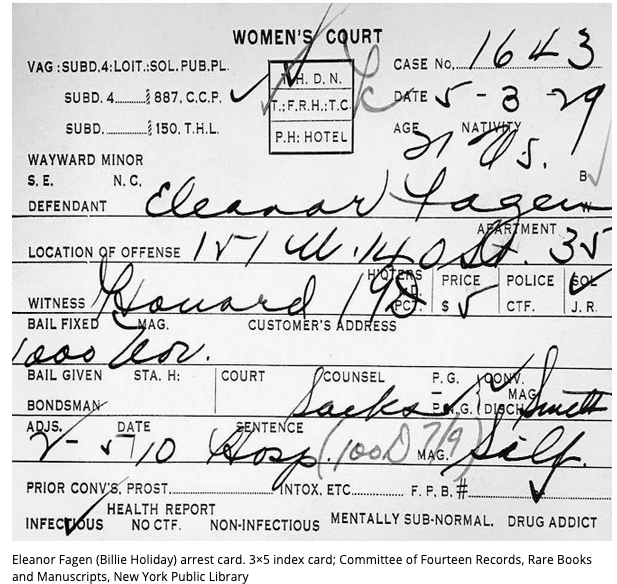 WOMEN'S COURT
VAG :SUBD,4:LOIT.:SOL.PUB.PL.
T.H. D. N.
CASE No. 1643
SUBD. 4 § 887, C.C.P.
T.: F.R.H.:T.C.
DATE 5-3-29
SUBD. § 150, T.H.L.
P.H: HOTEL
AGE 21 NATIVITY U.S.
WAYWARD MINOR
S. E. N. C.
B
W
DEFENDANT Eleanor Fagen
APARTMENT
LOCATION OF OFFENSE 151 W. 140 St. 35
WITNESS
H'QTERS
PCT.
PRICE
$ 5
POLICE
CTF.
SOL
J. R.
BAIL FIXED MAG. CUSTOMER'S ADDRESS
1000
BAIL GIVEN STA. H: COURT COUNSEL P. G. CONV.
MAG
BONDSMAN Sacks P.N.G. DISCH
ADJS. DATE SENTENCE
Hosp. (100D 7/9) MAG.
PRIOR CONV'S, PROST. INTOX, ETC. F. P. B. #
HEALTH REPORT
INFECTIOUS NO CTF. NON-INFECTIOUS MENTALLY SUB-NORMAL. DRUG ADDICT
Eleanor Fagen (Billie Holiday) arrest card. 3×5 index card; Committee of Fourteen Records, Rare Books
and Manuscripts, New York Public Library